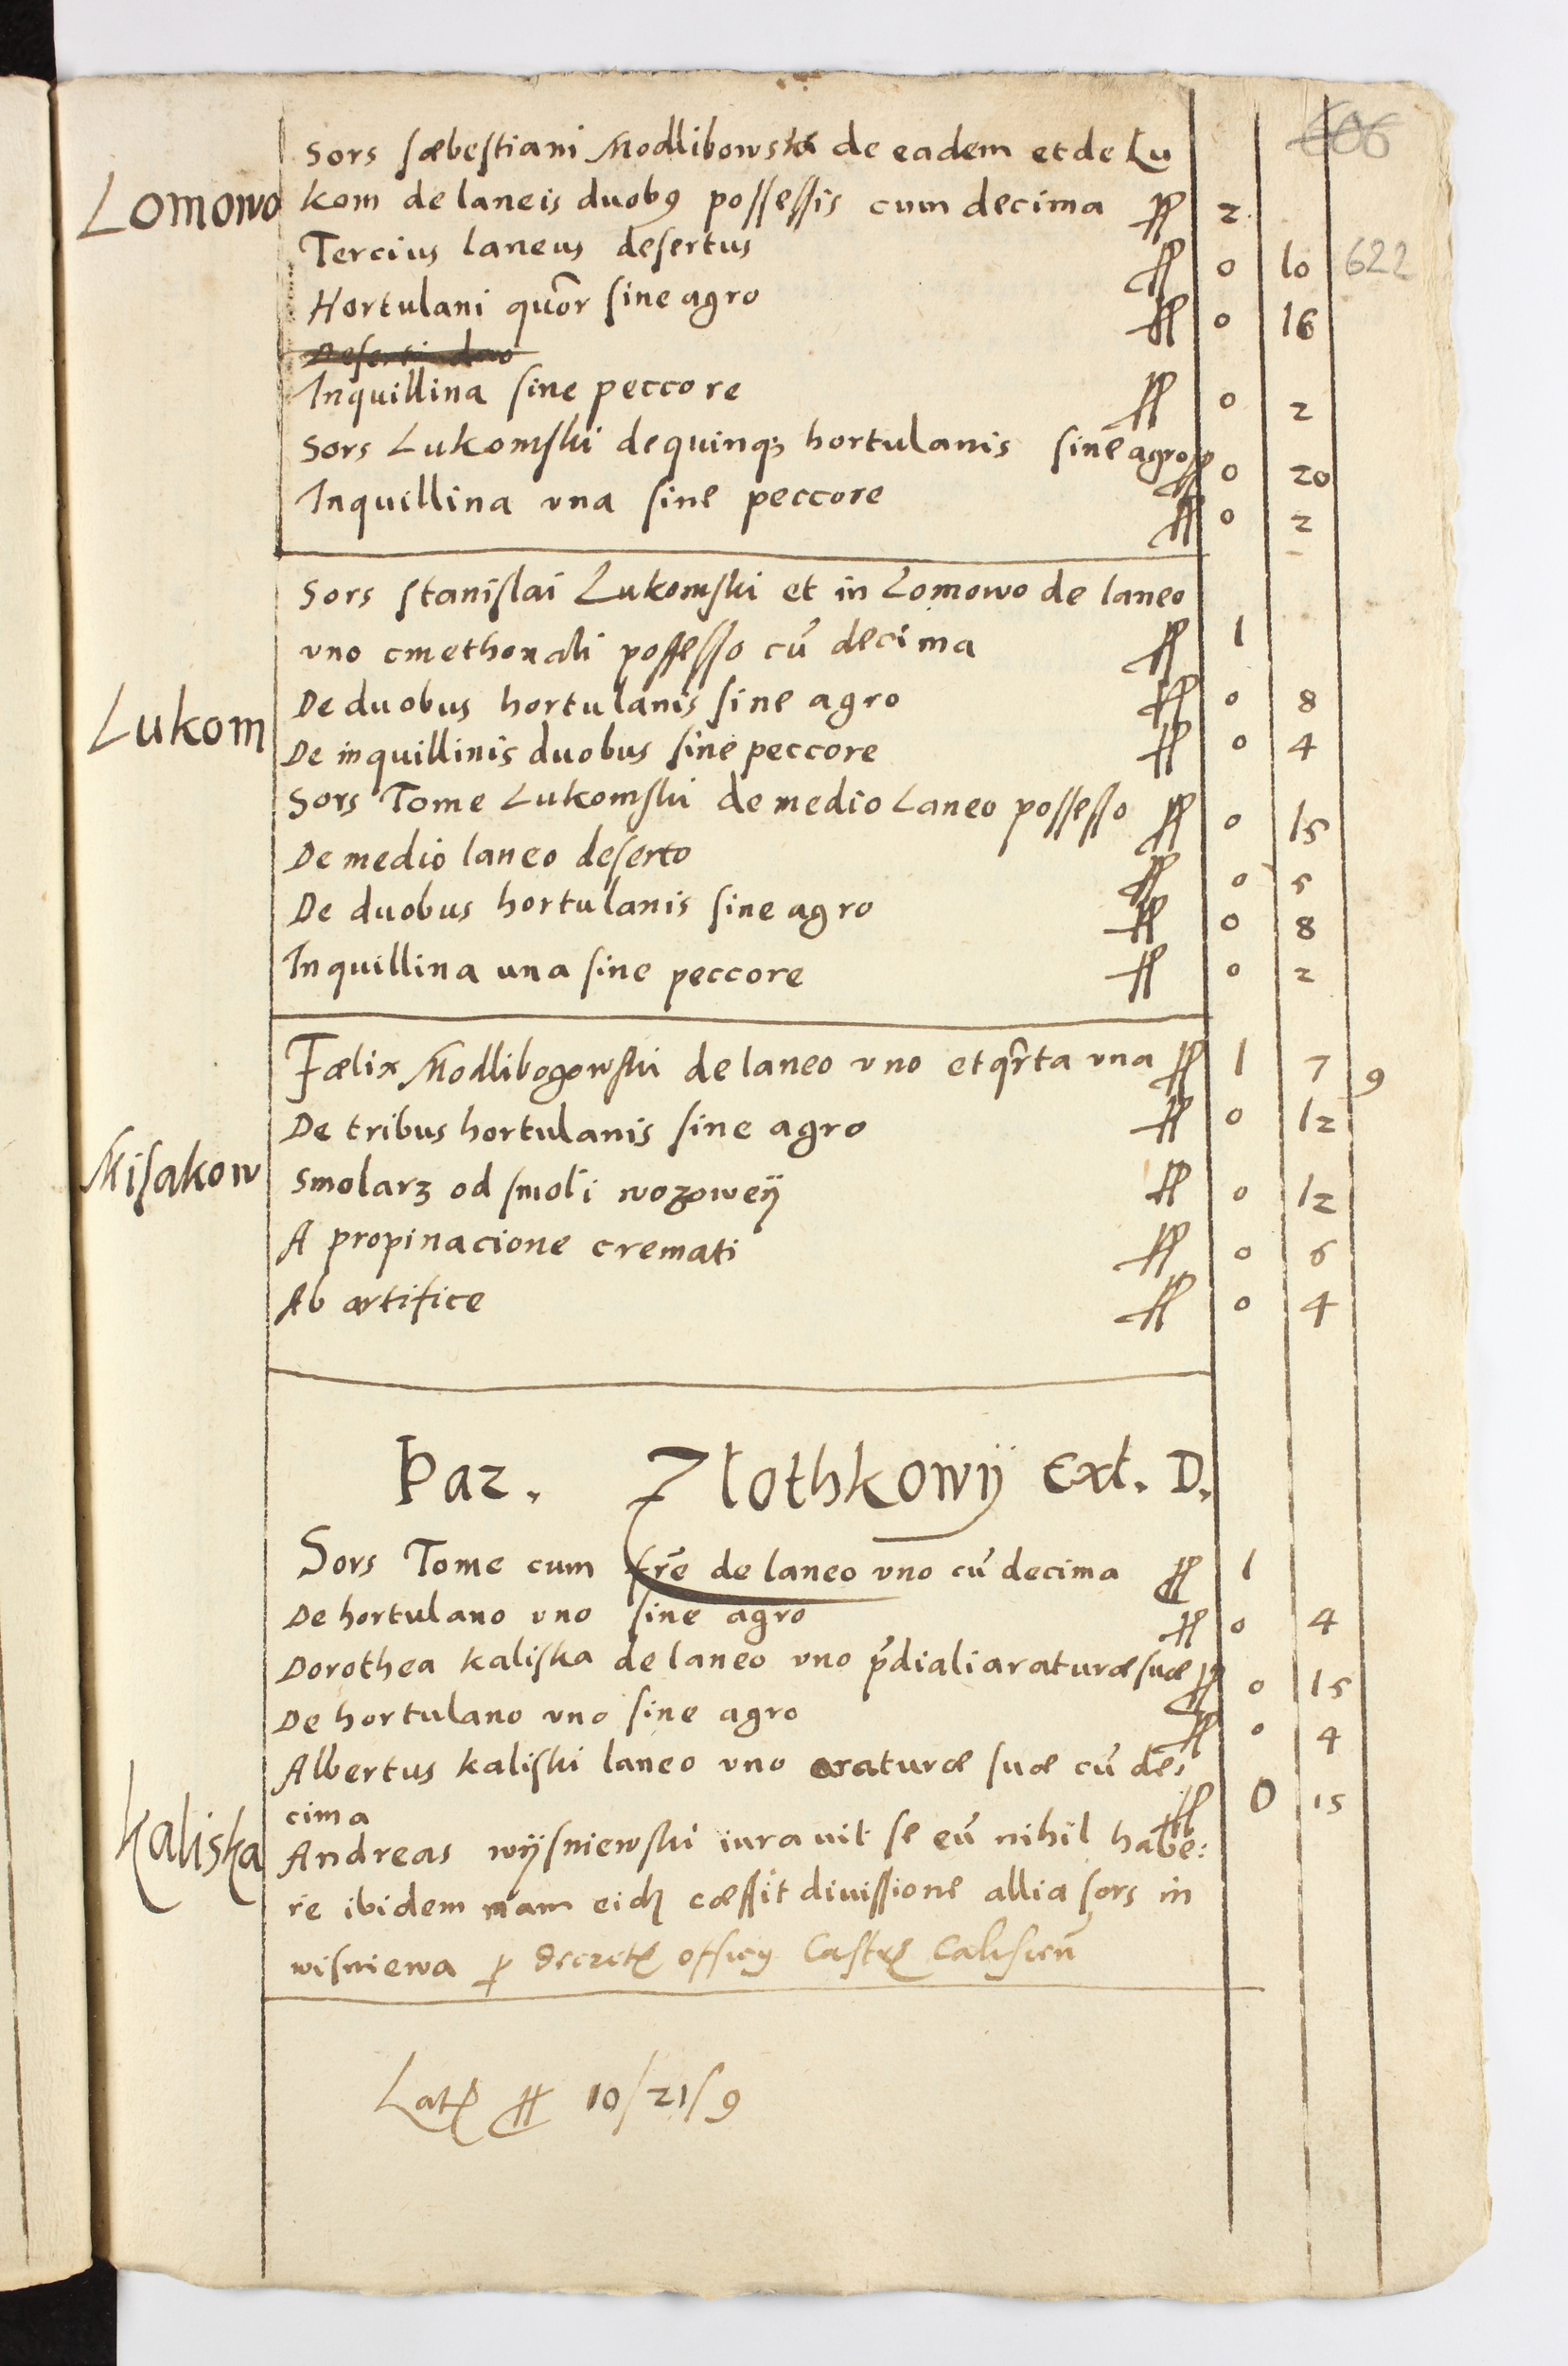 606
Sors sæbestiani Modlibowski de eadem et de Lu
Lomowo kom de laneis duobꝯ possessis cum decima ff 2
Tercius laneus desertus ff 0 10 622
Hortulani quõr sine agro ff 0 16
Deserti duo
Inquillina sine peccore ff 0 2
Sors Lukomski de quinqꝫ hortulanis sine agro ff 0 20
Inquillina vna sine peccore ff 0 2
Sors stanislai Lukomski et in Lomowo de laneo
vno cmethonali possesso cũ decima ff 1
Lukom De duobus hortulanis sine agro ff 0 8
De inquillinis duobus sine peccore ff 0 4
Sors Tome Lukomski de medio Laneo possesso ff 0 15
De medio laneo deserto ff 0 5
De duobus hortulanis sine agro ff 0 8
Inquillina una sine peccore ff 0 2
Fœlix Modlibogowski de laneo vno et qr̃ta vna ff 1 7 9
De tribus hortulanis sine agro ff 0 12
Misakow Smolarz od smoli wozoweÿ ff 0 12
A propinacione cremati ff 0 6
Ab artifice ff 0 4
Par. Zlothkowÿ Ext. D.
Sors Tome cum fr̃e de laneo vno cũ decima ff 1
De hortulano vno sine agro ff 0 4
Dorothea kaliska de laneo vno p̃diali araturæ suæ ff 0 15
De hortulano vno sine agro ff 0 4
Albertus kaliski laneo vno araturæ suæ cũ de
cima ff 0 15
Kaliska Andreas wÿsniewski iurauit se eũ nihil habe:
re ibidem nam eidꝫ cæssit diuissione allia sors in
wisniewa ꝑ decretꝭ officÿ Castrꝭ Calisieñ
Latꝭ ff 10/21/9